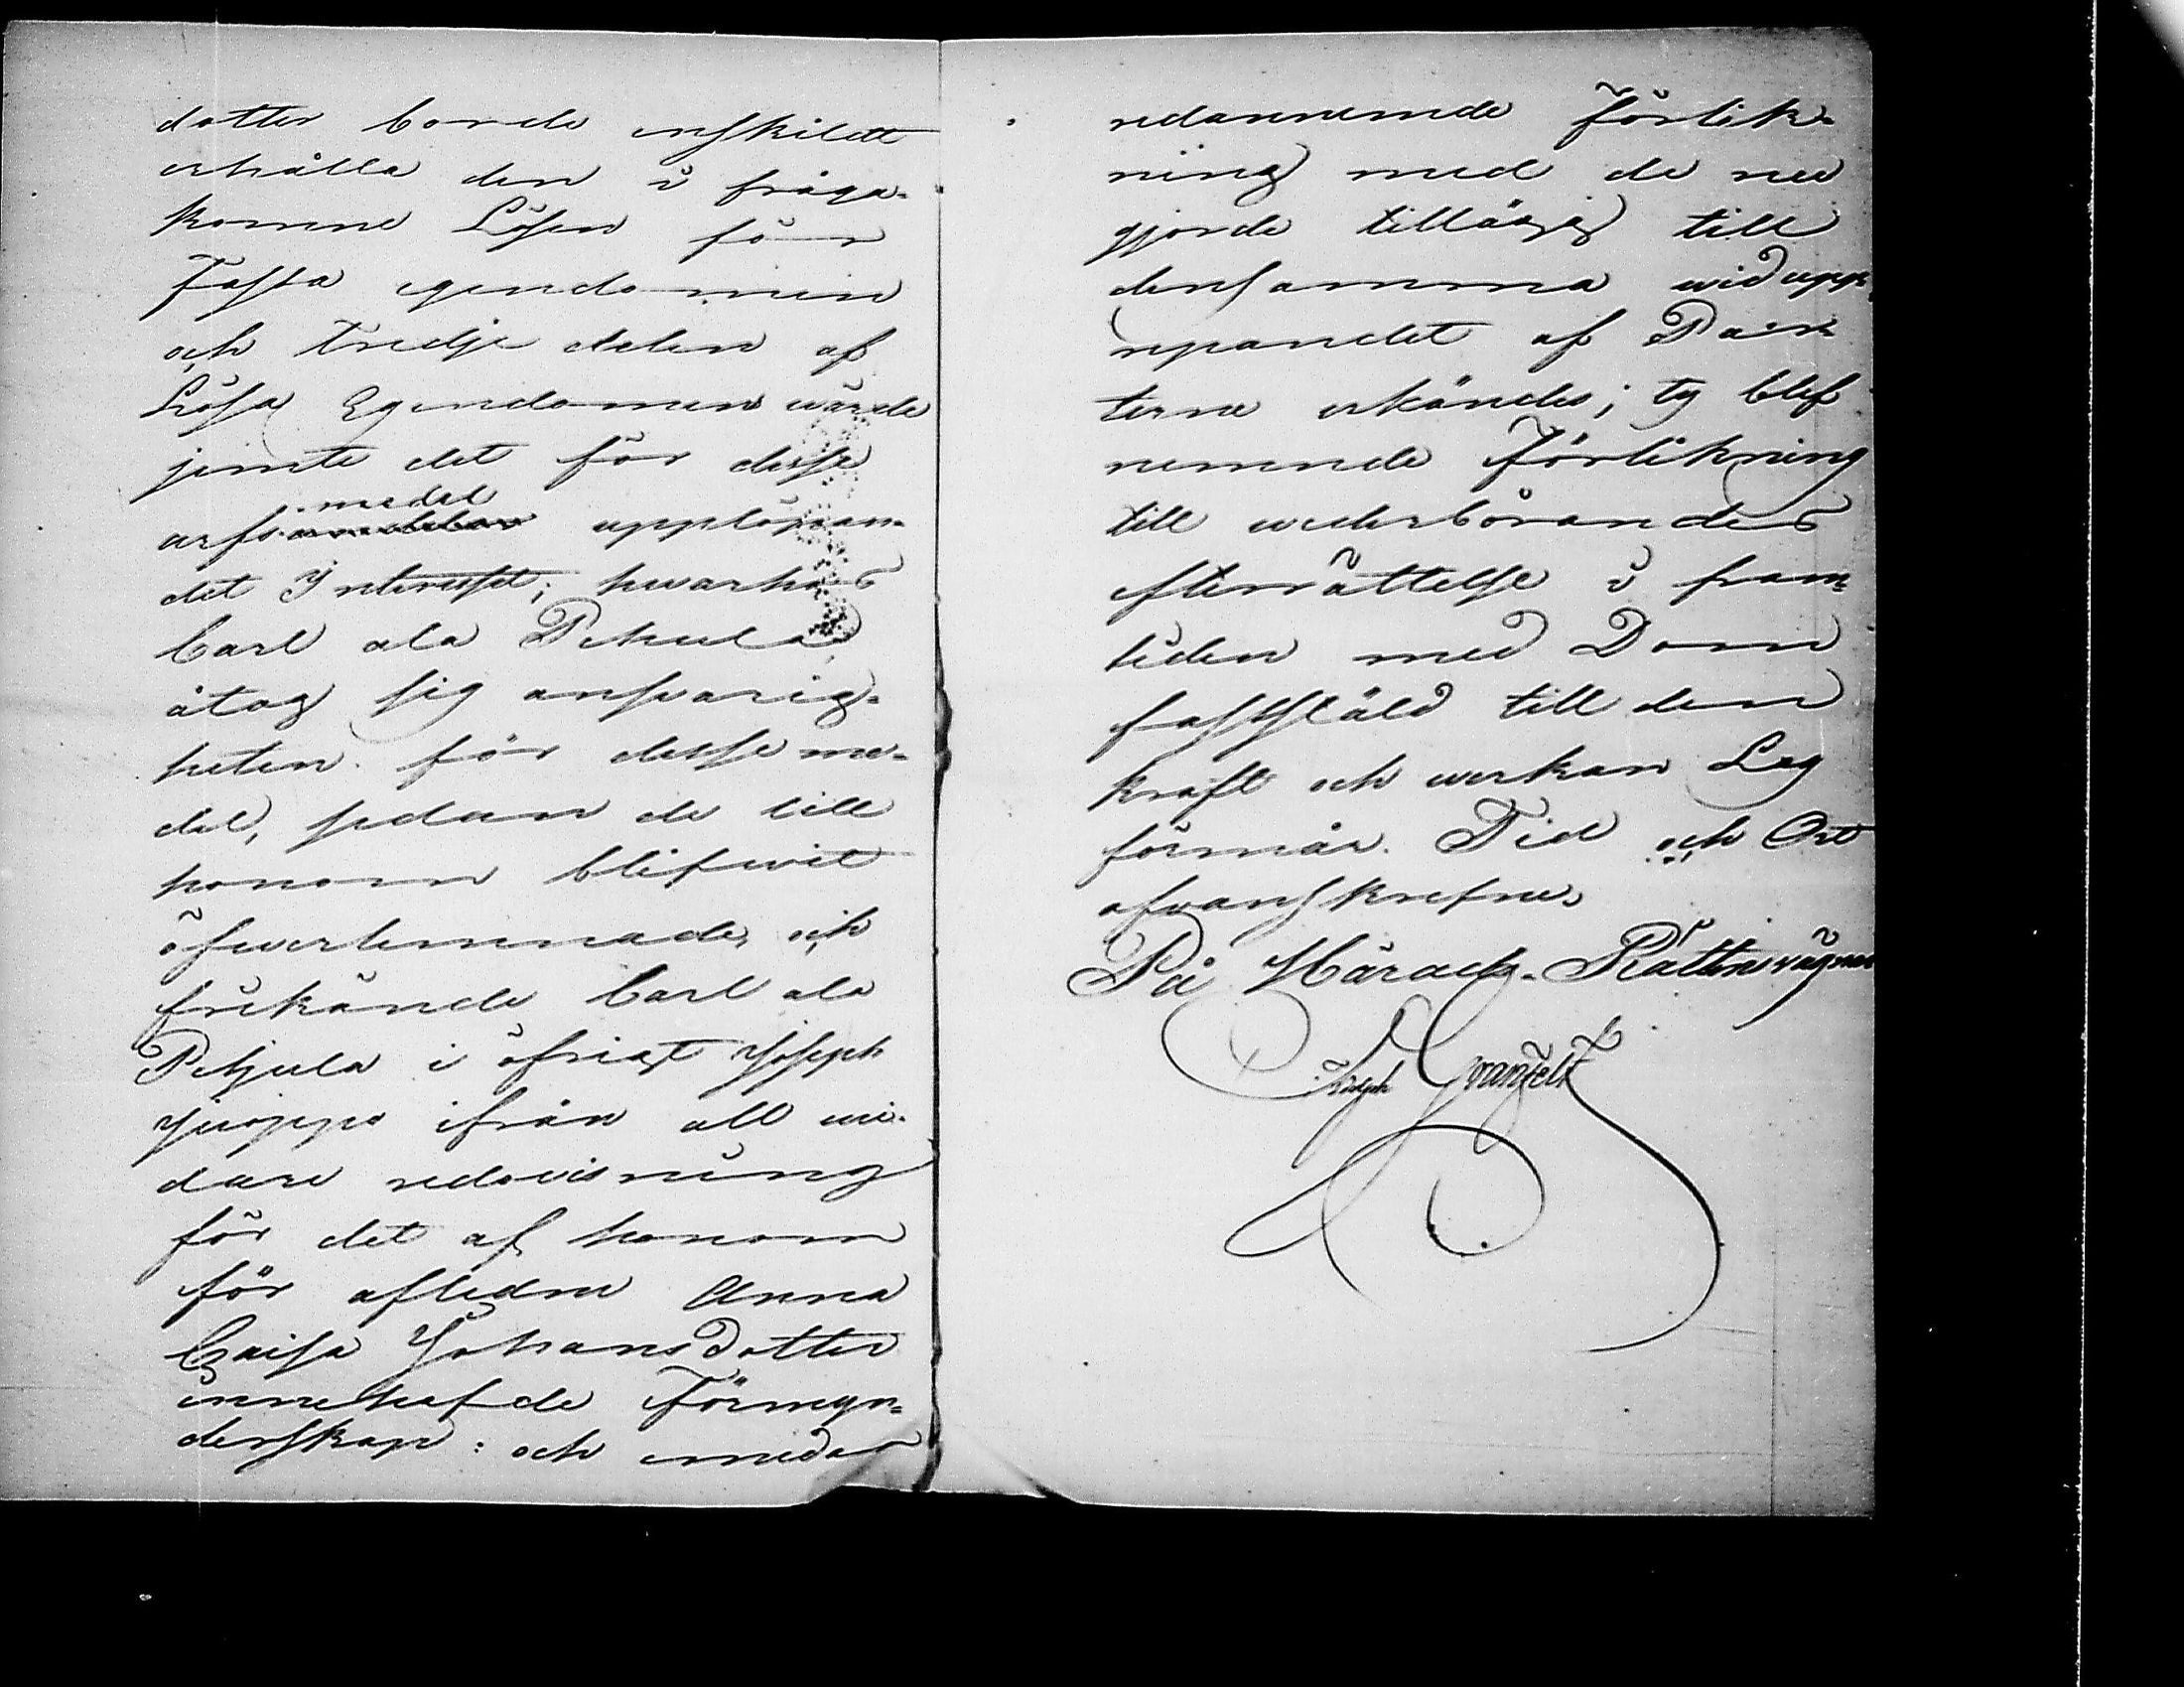 dotter borde enskildt
erhålla den i fråga
komne Lösen för
Fasta egendomen
och tredje delen af
Lösa Egendomen wärde
jemte det för desse
arfsmedel upplöpan-
det Interesset; hwarhos
Carl ala Pihula
åtog sig answarig-
heten för desse me-
del, sedan de till
honom blifwit
öfwerlemnade, och
frikände Carl ala
Pihjula i öfrigt Joseph
Juoppo ifrån all wi-
dare redowisning
för det af honom
för aflidne Anna
Caisa Johansdotter
innehafde Förmyn-
derskap: och emedan
nedannemde Förlik-
ning med de nu
gjorde tillägg till
densamma wid upp-
ropandet af Par-
terne erkändes; ty blef
nemnde Förlikning
till wederbörandes
efterrättelse i fram-
tiden med Dom
fastställd till den
kraft och werkan Lag
förmår. Tid och Ort
ofwanskrefne.
På Härads-Rättens wägnar
Adolph Granfelt